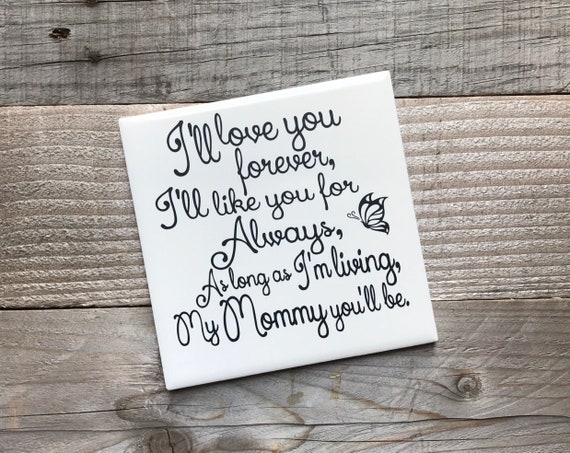 I'll love you
forever,
I'll like you for
Always,
As long as I'm living,
My Mommy you'll be.